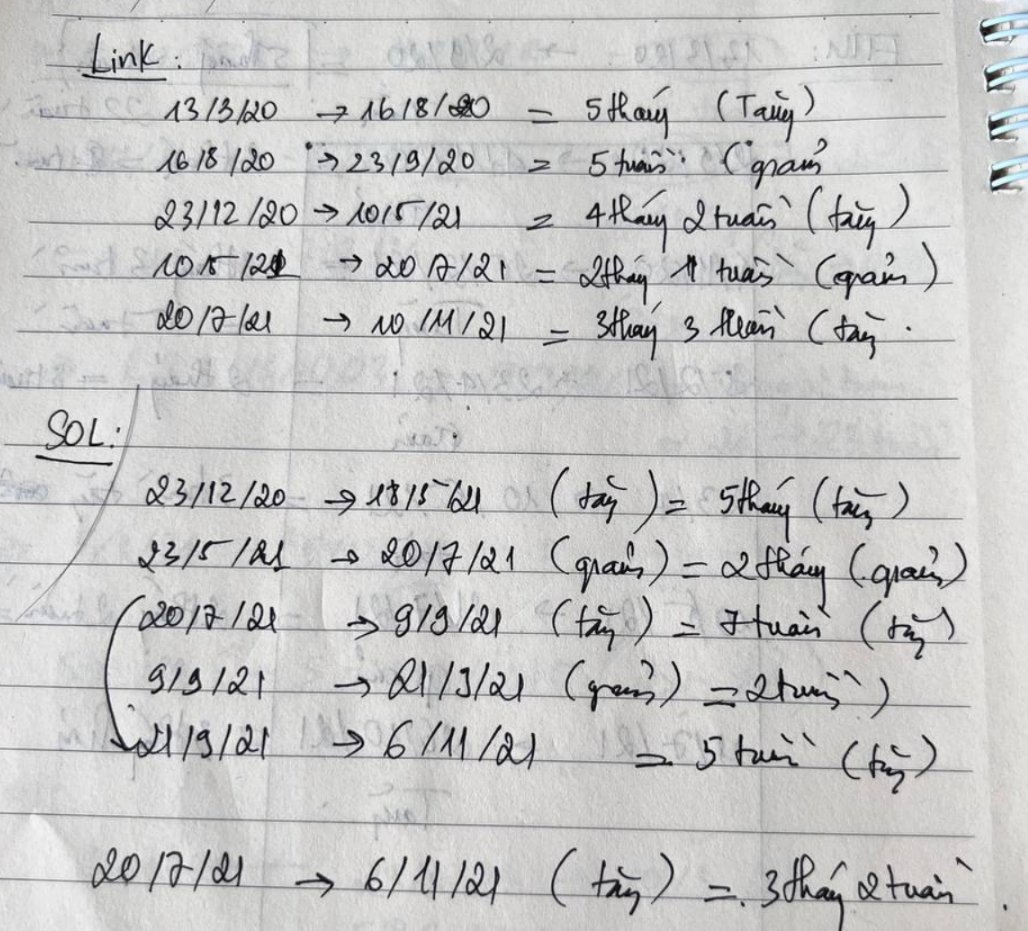 Link:
13/3/20 → 16/8/20 = 5 tháng (Tăng)
16/8/20 → 23/9/20 = 5 tuần (giảm
23/12/20 → 10/5/21 = 4 tháng 2 tuần (tăng)
10/5/21 → 20/7/21 = 2 tháng 1 tuần (giảm)
20/7/21 → 10/11/21 = 3 tháng 3 tuần (tăng
SOL:
23/12/20 → 18/5/21 (tăng) = 5 tháng (tăng)
23/5/21 → 20/7/21 (giảm) = 2 tháng (giảm)
20/7/21 → 9/9/21 (tăng) = 7 tuần (tăng)
9/9/21 → 21/9/21 (giảm) = 2 tuần)
21/9/21 → 6/11/21 = 5 tuần (tăng)
20/7/21 → 6/11/21 (tăng) = 3 tháng 2 tuần